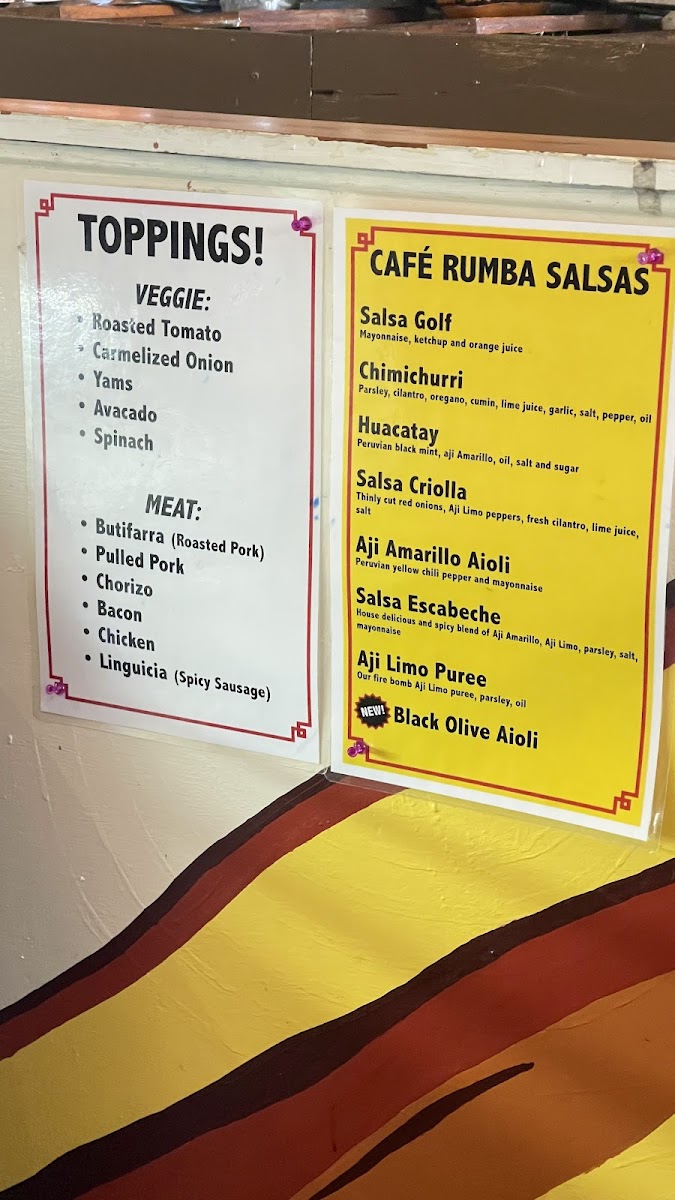 TOPPINGS!
VEGGIE:
• Roasted Tomato
• Carmelized Onion
• Yams
• Avacado
• Spinach
MEAT:
• Butifarra (Roasted Pork)
• Pulled Pork
• Chorizo
• Bacon
• Chicken
• Linguicia (Spicy Sausage)
CAFÉ RUMBA SALSAS
Salsa Golf
Mayonnaise, ketchup and orange juice
Chimichurri
Parsley, cilantro, oregano, cumin, lime juice, garlic, salt, pepper, oil
Huacatay
Peruvian black mint, aji Amarillo, oil, salt and sugar
Salsa Criolla
Thinly cut red onions, Aji Limo peppers, fresh cilantro, lime juice,
salt
Aji Amarillo Aioli
Peruvian yellow chili pepper and mayonnaise
Salsa Escabeche
House delicious and spicy blend of Aji Amarillo, Aji Limo, parsley, salt,
mayonnaise
Aji Limo Puree
Our fire bomb Aji Limo puree, parsley, oil
NEW! Black Olive Aioli